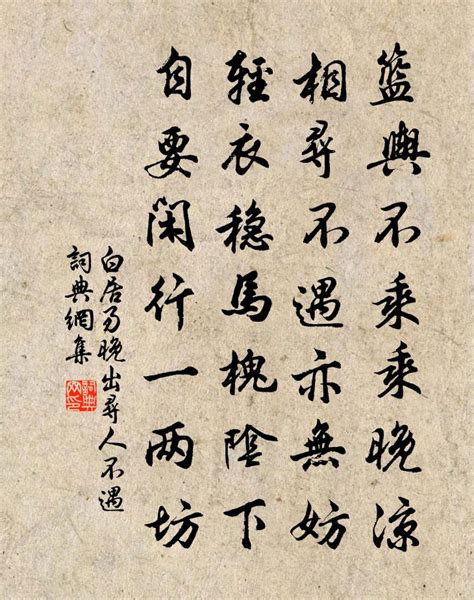 籃輿不乘乘晚涼
相尋不遇亦無妨
輕衣穩馬槐陰下
自要閑行一两坊
白居易晚出尋人不遇
詞典網集